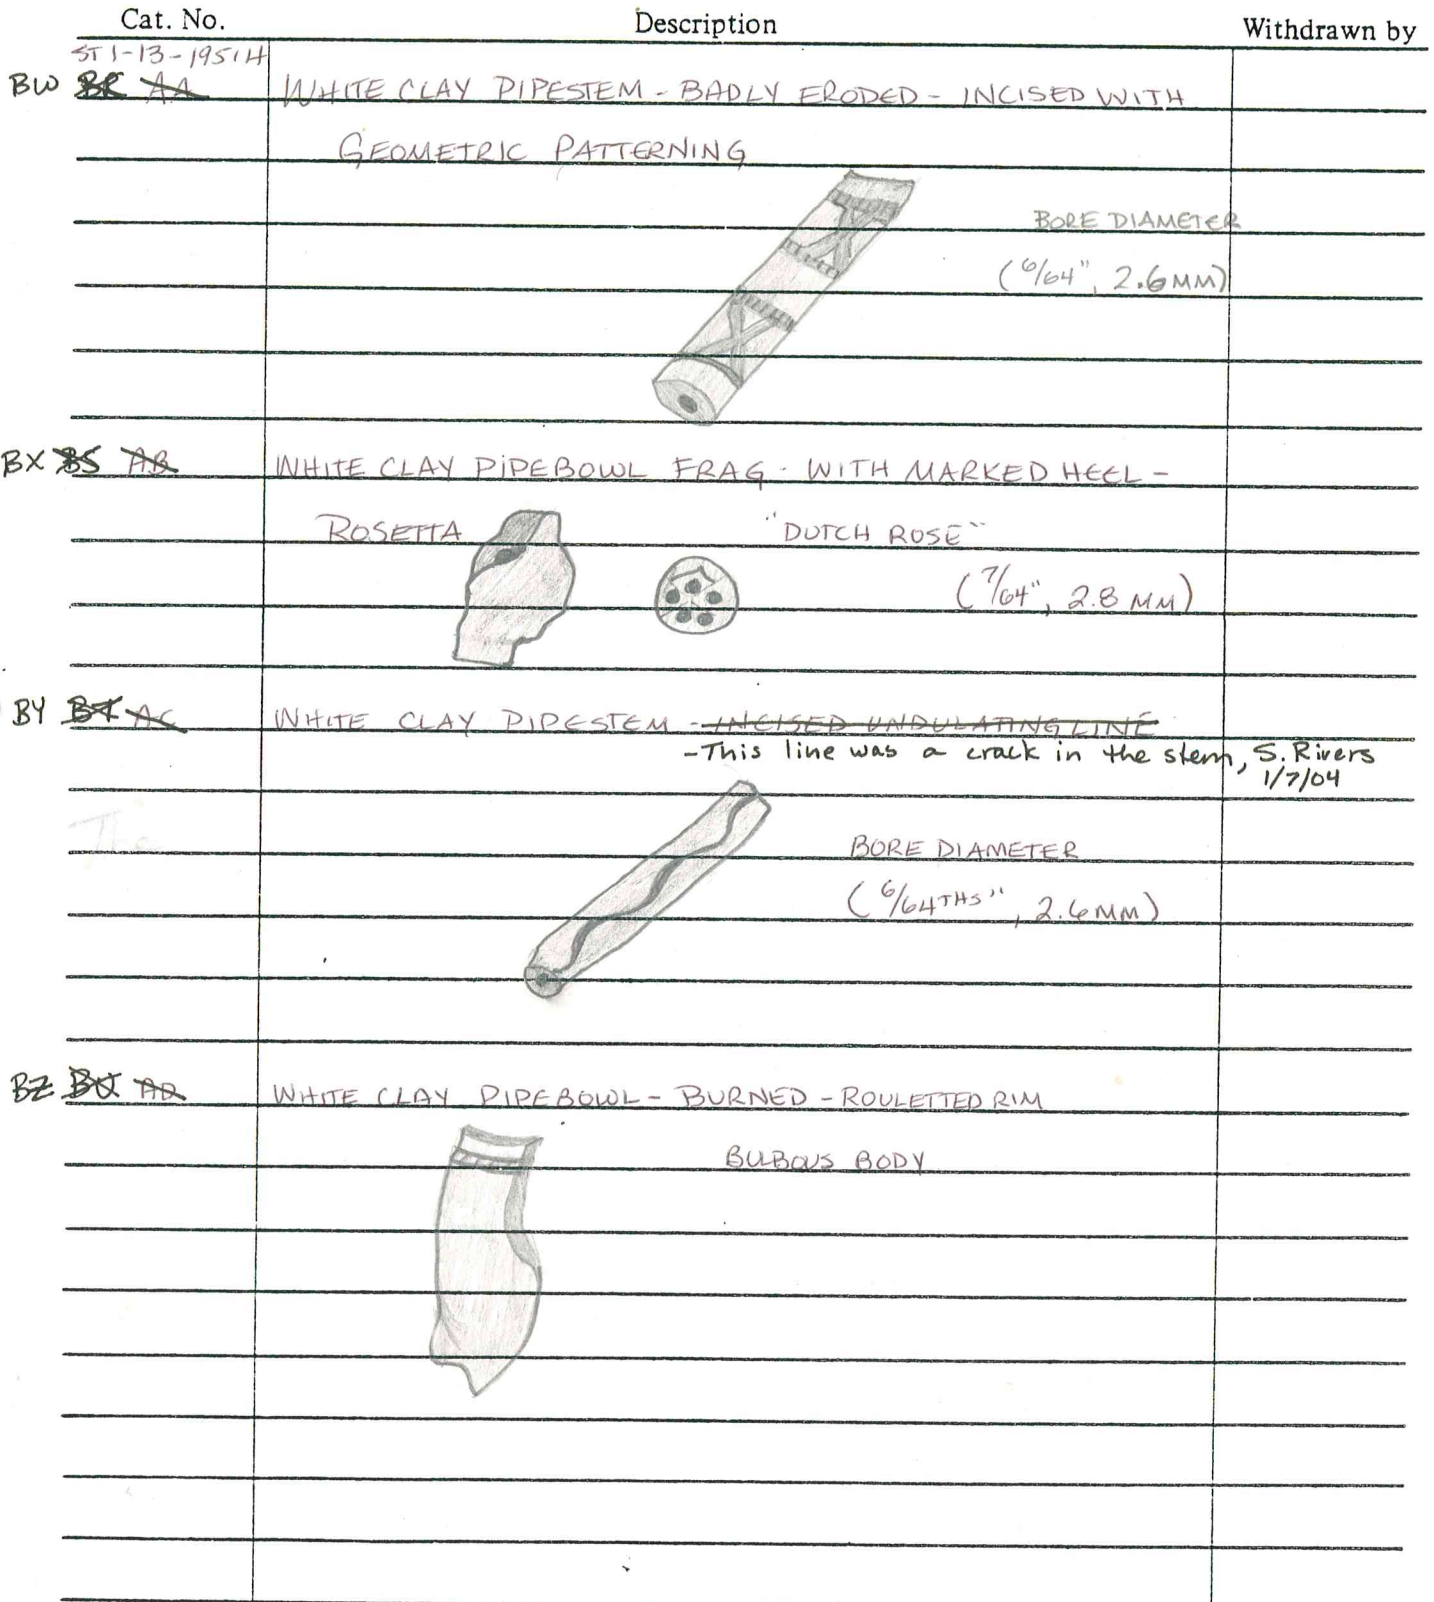 Cat. No. Description Withdrawn by
ST 1-13-1951H
BW BR AA WHITE CLAY PIPESTEM - BADLY ERODED - INCISED WITH
GEOMETRIC PATTERNING
BORE DIAMETER
(6/64", 2.6MM)
BX BS AB WHITE CLAY PIPEBOWL FRAG. WITH MARKED HEEL -
ROSETTA "DUTCH ROSE"
(7/64", 2.8 MM)
BY BT AC WHITE CLAY PIPESTEM - INCISED UNDULATING LINE
-This line was a crack in the stem, S. Rivers
1/7/04
BORE DIAMETER
(6/64THS", 2.6MM)
BZ BU AD WHITE CLAY PIPEBOWL - BURNED - ROULETTED RIM
BULBOUS BODY